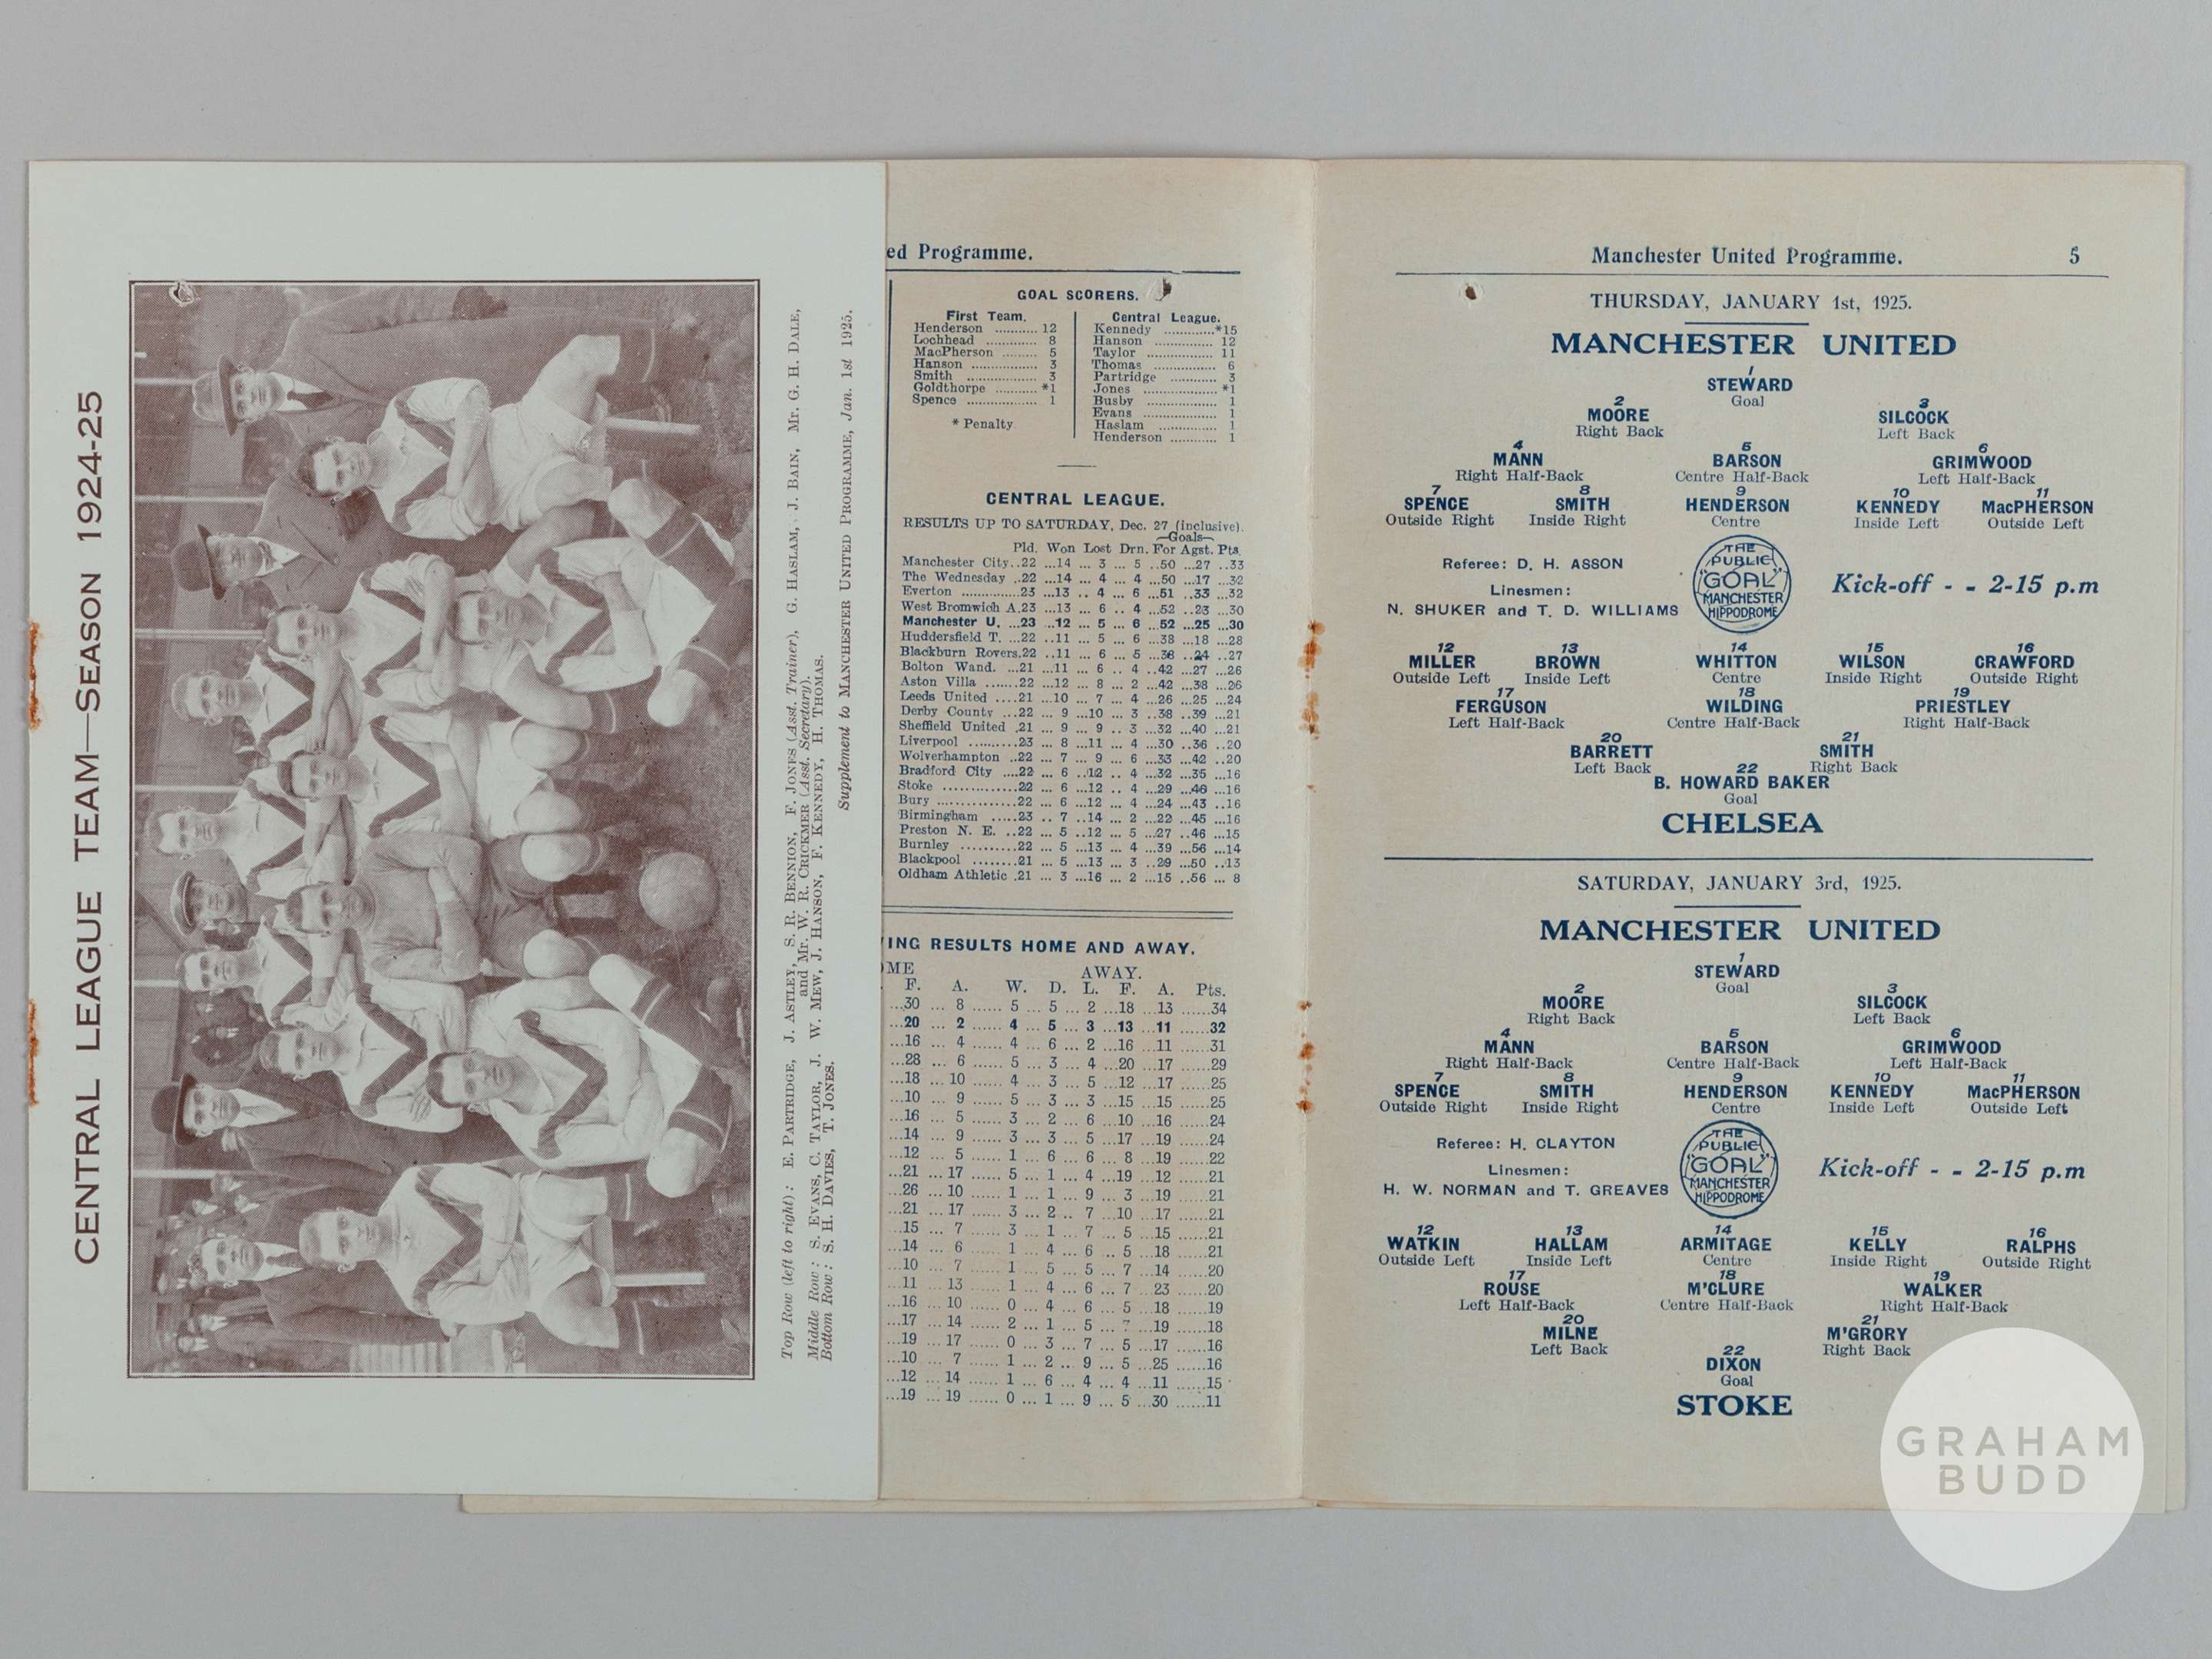 CENTRAL LEAGUE TEAM—SEASON 1924-25
Top Row (left to right): E. PARTRIDGE, J. ASTLEY, S. R. BENNION, F. JONES (Asst. Trainer), G. HASLAM, J. BAIN, Mr. G. H. DALE,
and Mr. W. R. CRICKMER (Asst. Secretary).
Middle Row: S. EVANS, C. TAYLOR, J. W. MEW, J. HANSON, F. KENNEDY, H. THOMAS.
Bottom Row: S. H. DAVIES, T. JONES.
Supplement to MANCHESTER UNITED PROGRAMME, Jan. 1st 1925.
ed Programme.
GOAL SCORERS.
First Team.
Henderson ........... 12
Lochhead ............. 8
MacPherson ........ 5
Hanson ................ 3
Smith .................. 3
Goldthorpe ......... *1
Spence ................. 1
* Penalty
Central League.
Kennedy ............*15
Hanson .............. 12
Taylor ................ 11
Thomas .............. 6
Partridge ........... 3
Jones .................*1
Busby ................. 1
Evans ................. 1
Haslam .............. 1
Henderson ........... 1
CENTRAL LEAGUE.
RESULTS UP TO SATURDAY, Dec. 27 (inclusive).
—Goals—
Pld. Won Lost Drn. For Agst. Pts.
Manchester City..22 ...14 ... 3 ... 5 ..50 ...27 ..33
The Wednesday ..22 ...14 ... 4 ... 4 ...50 ...17 ...32
Everton ..............23 ...13 .. 4 ... 6 ...51 ..33 ...32
West Bromwich A.23 ...13 ... 6 .. 4 ...52 ..23 ...30
Manchester U. ...23 ...12 ... 5 ... 6 ...52 ...25 ...30
Huddersfield T. ...22 ..11 ... 5 ... 6 ...38 ...18 ...28
Blackburn Rovers.22 ..11 ... 6 ... 5 ...36 ..24 ..27
Bolton Wand. ...21 ...11 ... 6 .. 4 ..42 ...27 ...26
Aston Villa .......22 ...12 ... 8 ... 2 ...42 ...38 ...26
Leeds United ....21 ...10 ... 7 ... 4 ...26 ...25 ...24
Derby County ...22 ... 9 ...10 ... 3 ..38 ..39 ...21
Sheffield United .21 ... 9 ... 9 .. 3 ...32 ...40 ...21
Liverpool ..........23 ... 8 ...11 ... 4 ...30 ..36 ..20
Wolverhampton ..22 ... 7 ... 9 ... 6 ...33 ...42 ..20
Bradford City ....22 ... 6 ..12 .. 4 ...32 ...35 ...16
Stoke ...............22 ... 6 ...12 .. 4 ...29 ...46 ...16
Bury ................22 ... 6 ...12 ... 4 ...24 ...43 ..16
Birmingham .....23 .. 7 ..14 ... 2 ...22 ...45 ...16
Preston N. E. ..22 ... 5 ..12 ... 5 ...27 ..46 ...15
Burnley ..........22 ... 5 ...13 ... 4 ...39 ...56 ...14
Blackpool ........21 ... 5 ...13 ... 3 ..29 ...50 ..13
Oldham Athletic .21 ... 3 ...16 ... 2 ...15 ..56 ... 8
ING RESULTS HOME AND AWAY.
ME AWAY.
F. A. W. D. L. F. A. Pts.
...30 ... 8 ...... 5 ... 5 ... 2 ...18 ...13 ......34
...20 ... 2 ...... 4 ... 5 ... 3 ...13 ...11 ......32
...16 ... 4 ...... 4 ... 6 ... 2 ...16 ...11 ......31
...28 ... 6 ...... 5 ... 3 ... 4 ...20 ...17 ......29
...18 ... 10 ...... 4 ... 3 ... 5 ...12 ...17 ......25
...10 ... 9 ...... 5 ... 3 ... 3 ...15 ...15 ......25
...16 ... 5 ...... 3 ... 2 ... 6 ...10 ...16 ......24
...14 ... 9 ...... 3 ... 3 ... 5 ...17 ...19 ......24
...12 ... 5 ...... 1 ... 6 ... 6 ... 8 ...19 ......22
...21 ... 17 ...... 5 ... 1 ... 4 ...19 ...12 ......21
...26 ... 10 ...... 1 ... 1 ... 9 ... 3 ...19 ......21
...21 ... 17 ...... 3 ... 2 .. 7 ...10 ...17 ......21
...15 ... 7 ...... 3 ... 1 ... 7 ... 5 ...15 ......21
...14 ... 6 ...... 1 ... 4 ... 6 .. 5 ...18 ......21
...10 ... 7 ...... 1 ... 5 ... 5 ... 7 ...14 ......20
...11 ... 13 ...... 1 ... 4 ... 6 ... 7 .. 23 ......20
...16 ... 10 ...... 0 ... 4 ... 6 ... 5 ...18 ......19
...17 ... 14 ...... 2 ... 1 ... 5 ... 7 ...19 ......18
...19 ... 17 ...... 0 ... 3 ... 7 ... 5 ...17 ......16
...10 ... 7 ...... 1 ... 2 .. 9 ... 5 ...25 ......16
...12 ... 14 ...... 1 ... 6 ... 4 ... 4 ...11 ......15
...19 ... 19 ...... 0 ... 1 ... 9 ... 5 ...30 ......11
Manchester United Programme. 5
THURSDAY, JANUARY 1st, 1925.
MANCHESTER UNITED
1
STEWARD
Goal
2 3
MOORE SILCOCK
Right Back Left Back
4 5 6
MANN BARSON GRIMWOOD
Right Half-Back Centre Half-Back Left Half-Back
7 8 9 10 11
SPENCE SMITH HENDERSON KENNEDY MacPHERSON
Outside Right Inside Right Centre Inside Left Outside Left
Referee: D. H. ASSON
Linesmen:
N. SHUKER and T. D. WILLIAMS
THE
PUBLIC
"GOAL"
MANCHESTER
HIPPODROME
Kick-off - - 2-15 p.m
12 13 14 15 16
MILLER BROWN WHITTON WILSON CRAWFORD
Outside Left Inside Left Centre Inside Right Outside Right
17 18 19
FERGUSON WILDING PRIESTLEY
Left Half-Back Centre Half-Back Right Half-Back
20 21
BARRETT SMITH
Left Back Right Back
22
B. HOWARD BAKER
Goal
CHELSEA
SATURDAY, JANUARY 3rd, 1925.
MANCHESTER UNITED
1
STEWARD
Goal
2 3
MOORE SILCOCK
Right Back Left Back
4 5 6
MANN BARSON GRIMWOOD
Right Half-Back Centre Half-Back Left Half-Back
7 8 9 10 11
SPENCE SMITH HENDERSON KENNEDY MacPHERSON
Outside Right Inside Right Centre Inside Left Outside Left
Referee: H. CLAYTON
Linesmen:
H. W. NORMAN and T. GREAVES
THE
PUBLIC
"GOAL"
MANCHESTER
HIPPODROME
Kick-off - - 2-15 p.m
12 13 14 15 16
WATKIN HALLAM ARMITAGE KELLY RALPHS
Outside Left Inside Left Centre Inside Right Outside Right
17 18 19
ROUSE M'CLURE WALKER
Left Half-Back Centre Half-Back Right Half-Back
20 21
MILNE M'GRORY
Left Back Right Back
22
DIXON
Goal
STOKE
GRAHAM
BUDD